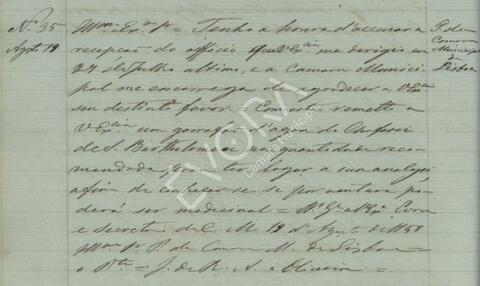 Nº 35
Agto 19
Illmo Exmo Sr = Tenho a honra d'accusar a
recepção do officio que V Exª me dirigiu em
27 de Julho ultimo, e a Camara Munici-
pal me encarrega de agradecer a V Exª
seu distincto favor. Com este remetto a
V Exª um garrafão d'agoa do Chafariz
de S. Bartholomeu na quantidade reco-
mendada, para ter logar a sua analyse
afim de conhecer-se se por ventura po-
derá ser medicinal = Ds Ge a V Exª Evora
e Secretª da C. M. 19 d'Agosto de 1858
Illmo Sr P. da Camara M. de Lisboa =
o Pte = J. de R. A. e Oliveira =
P. da
Camara
Municipal
Lisboa
EVORA
Câmara Municipal